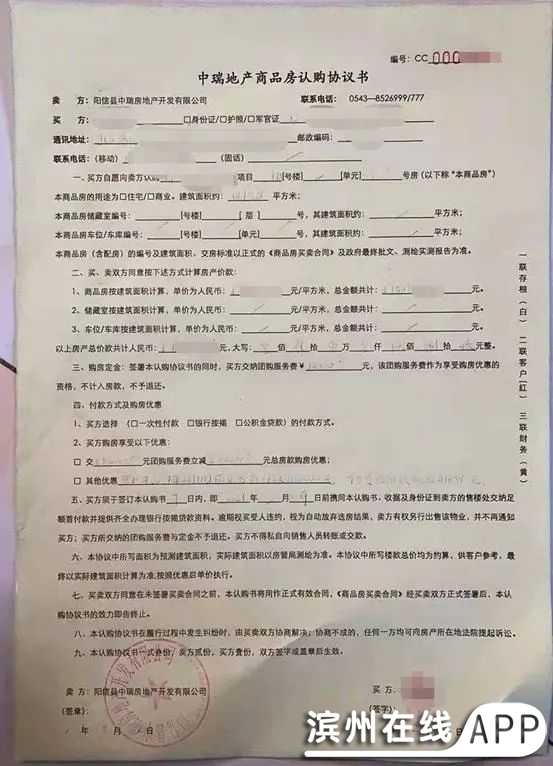 编号：CC 000
中瑞地产商品房认购协议书
卖 方：阳信县中瑞房地产开发有限公司 联系电话：0543—8526999/777
买 方： 口身份证/口护照/口军官证
通讯地址： 邮政编码：
联系电话：（移动） （固话）
一、买方自愿向卖方认购 项目 [号楼] [单元] 号房（以下称"本商品房"）
本商品房的用途为口住宅/口商业。建筑面积约： 平方米；
本商品房储藏室编号： [号楼] [层] 号，其建筑面积约： 平方米；
本商品房车位/车库编号： [号楼] [单元] 号，其建筑面积约： 平方米；
本商品房（含配房）的编号及建筑面积、交房标准以正式的《商品房买卖合同》及政府最终批文、测绘实测报告为准。
二、买、卖双方同意按下述方式计算房产价款：
1、商品房按建筑面积计算，单价为人民币： 元/平方米，总金额共计： 元。
2、储藏室按建筑面积计算，单价为人民币： 元/平方米，总金额共计： 元。
3、车位/车库按建筑面积计算，单价为人民币： 元/平方米，总金额共计： 元。
以上房产总价款共计人民币： 元，大写： 佰 拾 万 仟 佰 拾 元整。
三、购房定金：签署本认购协议书的同时，买方交纳团购服务费¥ 元，该团购服务费作为享受购房优惠的
资格，不计入房款，不予退还。
四、付款方式及购房优惠
1、买方选择（口一次性付款 口银行按揭 口公积金贷款）的付款方式。
2、买方购房享受以下优惠：
口 交 元团购服务费立减 元总房款购房优惠；
口 其他优惠
五、买方须于签订本认购书 日内，即 年 月 日前携同本认购书、收据及身份证到卖方的售楼处交纳足
额首付款并提供齐全办理银行按揭贷款资料。逾期视买受人违约，视为自动放弃选房结果，卖方有权另行出售该物业，并不再通知
买方；买方所交纳的团购服务费与定金不予退还。买方不得私自向销售人员转账或交款。
六、本协议中所写面积为预测建筑面积，实际建筑面积以房管局测绘为准。本协议中所写楼款总价均为约算，供客户参考，最
终以实际建筑面积计算为准，按照优惠后单价执行。
七、买卖双方同意在未签署买卖合同之前，本认购书将用作正式有效合同，《商品房买卖合同》经买卖双方正式签署后，本认
购协议书的效力即告终止。
八、本认购协议书在履行过程中发生纠纷时，由买卖双方协商解决；协商不成的，任何一方均可向房产所在地法院提起诉讼。
九、本认购协议书一式叁份，卖方贰份，买方壹份，双方签字或盖章后生效。
卖 方：阳信县中瑞房地产开发有限公司 买 方：
（签章） （签字）：
年 月 日
日
一联存根（白） 二联客户（红） 三联财务（黄）
滨州在线APP